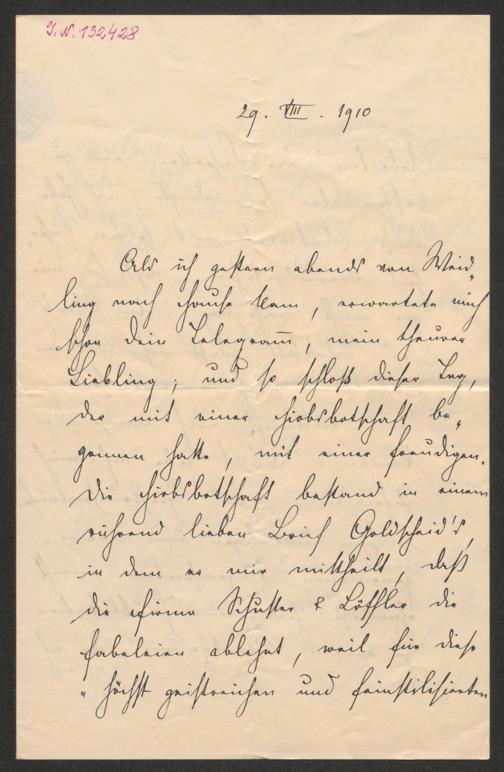 I. N. 132428
29. VIII. 1910
Als ich gestern abends von Weid„
ling nach Hause kam, erwartete mich
schon dein Telegram̅, mein theurer
Liebling; und so schloß dieser Tag,
der mit einer Hiobsbotschaft be„
gonnen hatte, mit einer freudigen.
Die Hiobsbotschaft bestand in einem
rührend lieben Brief Goldscheid's,
in dem er mir mittheilt, daß
die Firma Schuster & Löffler die
Fabeleien ablehnt, weil für diese
„höchst geistreichen und feinstilisierten